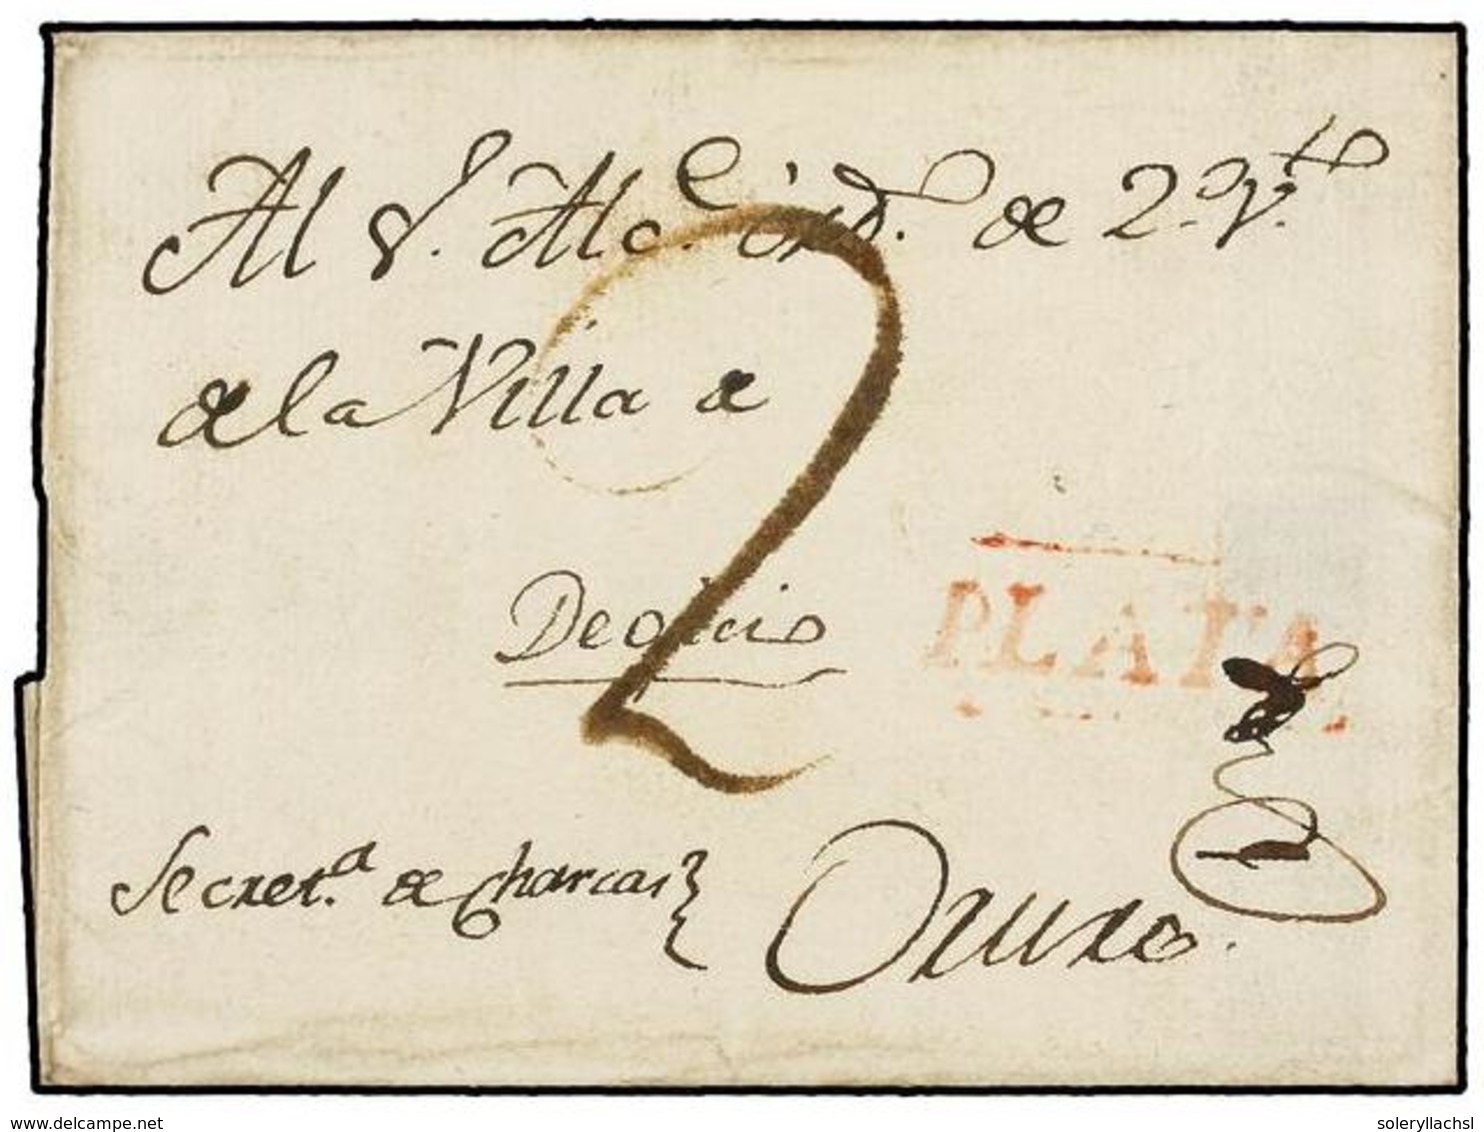 Al S.r Alc.e ord.o de 2.o V.to
de la Villa de
2
De oficio
PLATA
Secret.a de Charcas
Oruro.
www.delcampe.net
soleryllachsl